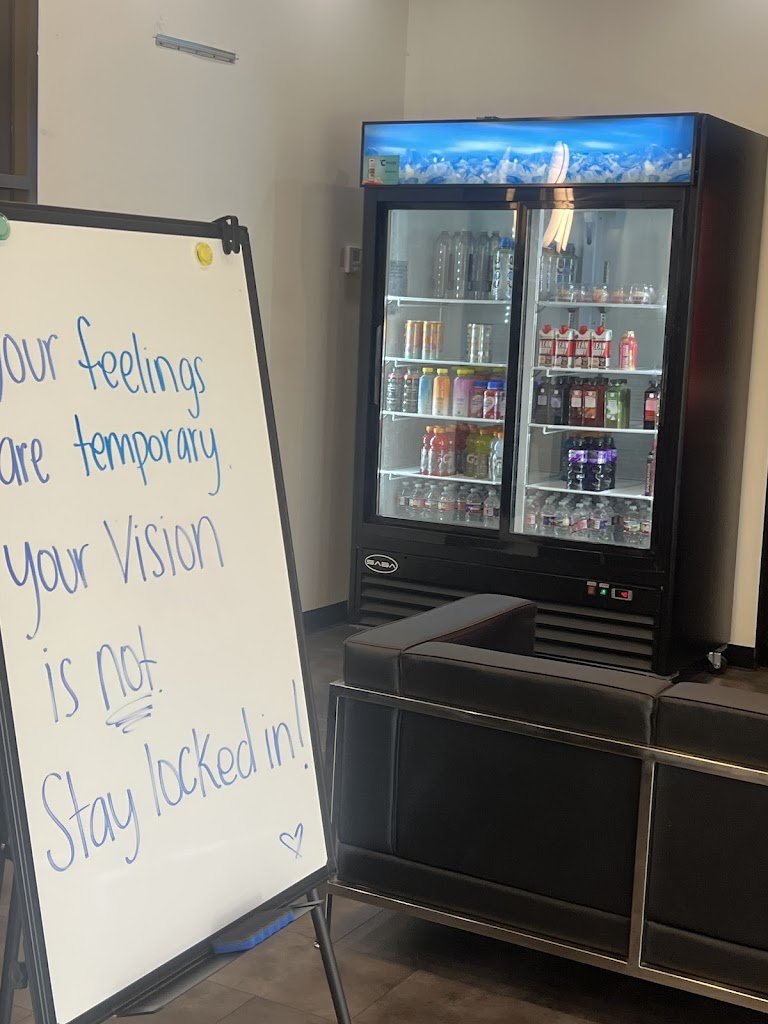 our feelings
are temporary
your Vision
is not.
Stay locked in!
SABA